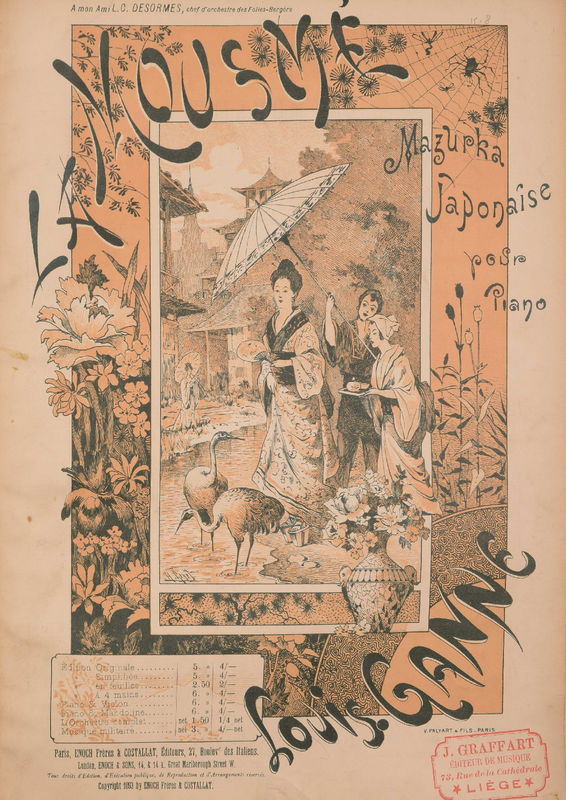 A mon Ami L.C. DESORMES, chef d'orchestre des Folies-Bergère
LA MOUSMÉ
Mazurka
Japonaise
pour
Piano
Louis GANNE
Edition Originale 5. " 4/—
Simplifiée 5. " 4/—
en feuilles 2.50 2/—
à 4 mains 6. " 4/—
Piano & Violon 6. " 4/—
Piano & Mandoline 6. " 4/—
L'Orchestre complet net 1.50 1/4 net
Musique militaire net 3. " 4/— net
V. PALYART & FILS. PARIS
Paris, ENOCH Frères & COSTALLAT, Éditeurs, 27, Boulevt des Italiens.
London, ENOCH & SONS, 14, & 14 A, Great Marlborough Street W.
Tous droits d'Edition, d'Exécution publique, de Reproduction et d'Arrangements réservés.
Copyright 1893 by ENOCH Frères & COSTALLAT.
J. GRAFFART
ÉDITEUR DE MUSIQUE
73, Rue de la Cathédrale
LIÉGE